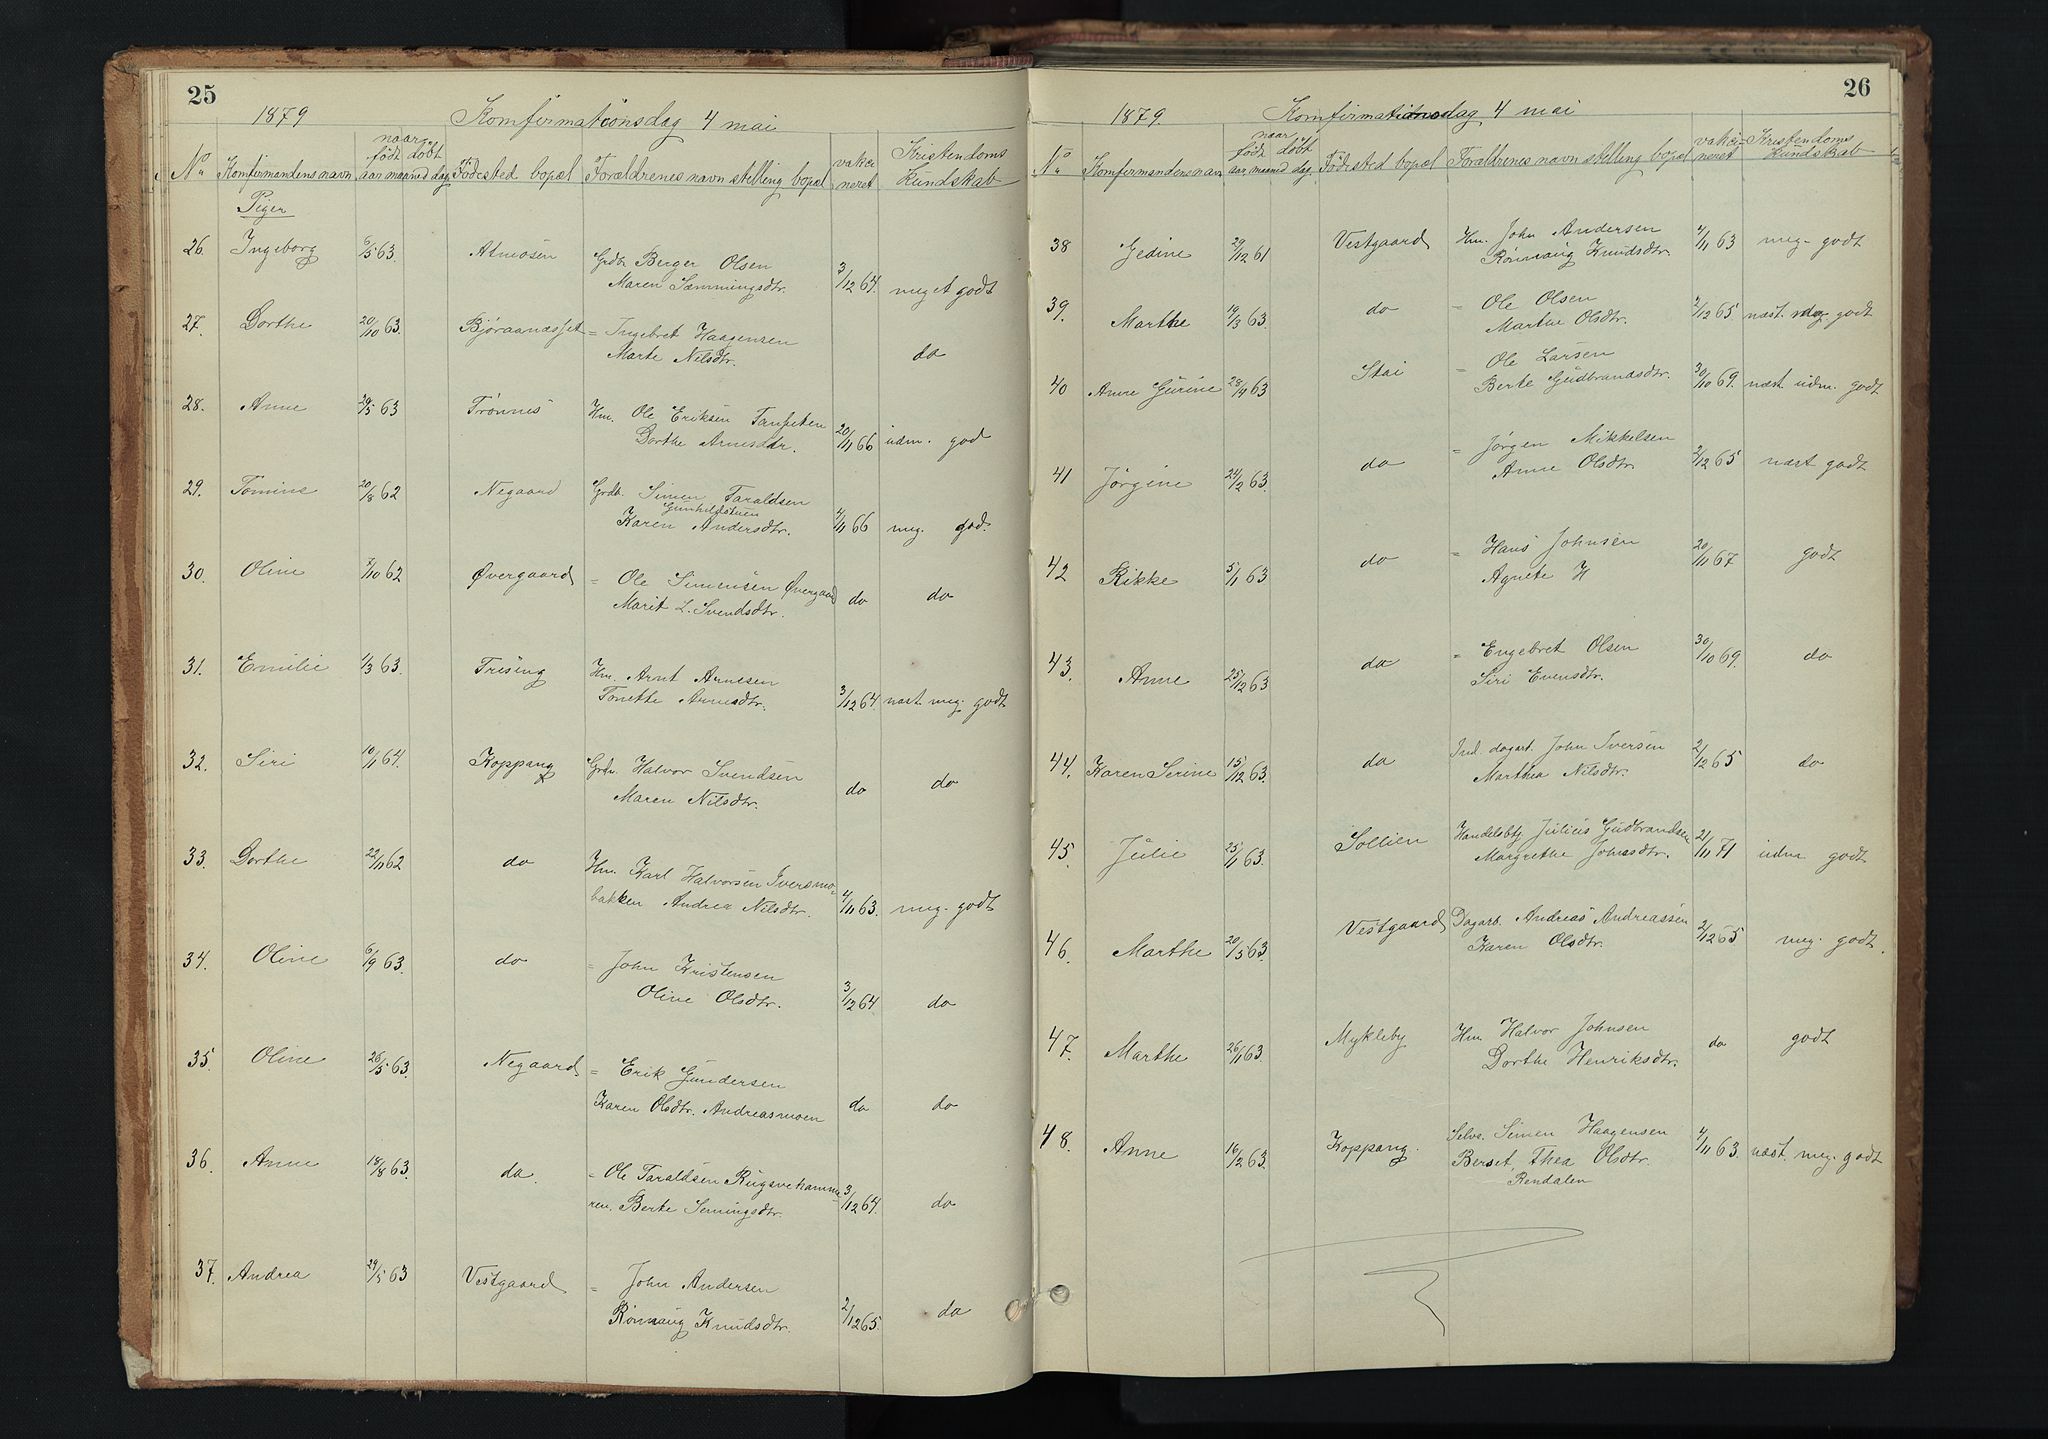 25
1879 Komfirmationsdag 4 mai
No Komfirmandens navn naar födt döbt aar maaned dag Födested bopæl Forældrenes navn stilling bopæl vakcineret Kristendoms kundskab
Piger
26. Ingeborg 6/5 63. Atneosen Grdbr Berger Olsen
Maren Sæmmingsdtr. 3/12 64. meget godt
27. Dorthe 20/10 63. Bjøraanæsset = Ingebret Haagensen
Marte Nilsdtr. do
28. Anne 29/5 63 Trønnes Hm. Ole Eriksen
Dorthe Arnesdtr. 20/11 66 udm. god
29. Tomine 20/8 62 Negaard Grdb. Simen Taraldsen
Gunhildstuen
Karen Andersdtr. 4/11 66 meg. god.
30. Oline 7/10 62 Øvergaard = Ole Simensen Øvergaard
Marit L. Svendsdtr. do do
31. Emilie 1/3 63. Treseng Hm. Arnt Arnesen
Tonette Arnesdtr. 3/12 64. næst meg. godt
32. Siri 10/1 64. Koppang Grdb. Halvor Svendsen
Maren Nilsdtr. do do
33. Dorthe 22/11 62 do Hm. Karl Halvorsen Iversmo-
bakken Andrea Nilsdtr. 4/11 63. meg. godt
34. Oline 6/9 63. do = John Kristensen
Oline Olsdtr. 3/12 64. do
35. Oline 26/5 63. Negaard = Erik Gundersen
Karen Olsdtr. Andreasmoen do do
36. Anne 18/8 63. do. = Ole Taraldsen Rugsvehamma-
ren. Berte Semingsdtr. 3/12 64. do
37. Andrea 29/5 63 Vestgaard = John Andersen
Rönnaug Knudsdtr. 2/12 65. do
26
1879 Komfirmationsdag 4 mai
No Komfirmandens navn naar födt döbt aar maaned dag Födested bopæl Forældrenes navn stilling bopæl vakcineret Kristendoms kundskab
38 Gedine 29/12 61 Vestgaard Hm. John Andersen
Rönnaug Knudsdtr. 4/11 63 meg. godt
39. Marthe 19/3 63. do = Ole Olsen
Marthe Olsdtr. 2/12 65. næst. meg. godt
40 Anne Gurine 28/9 63 Stai = Ole Larsen
Berte Gudbrandsdtr. 30/10 69. næst udm. godt
41 Jörgine 24/2 63. do = Jörgen Mikkelsen
Anne Olsdtr. 2/12 65 næst godt
42 Rikke 5/1 63 do = Hans Johnsen
Agnete H 20/11 67 godt
43. Anne 25/12 63 do = Engebret Olsen
Siri Evensdtr. 30/10 69. do
44. Karen Serine 15/12 63. do Ind. dagarb. John Iversen
Marthea Nilsdtr. 2/12 65 do
45. Julie 25/1 63. Sollien Handelsbtj. Julius Gudbrandsen
Margrethe Johnsdtr. 21/11 71 udm godt
46. Marthe 20/5 63. Vestgaard Dagarb. Andreas Andreassen
Karen Olsdtr. 2/12 65 meg. godt.
47. Marthe 26/1 63. Mykleby Hm. Halvor Johnsen
Dorthe Henriksdtr. do godt
48. Anne 16/2 63. Koppang. Selve. Simen Haagensen
Berset, Thea Olsdtr. 4/11 63. næst. meg. godt
Rendalen